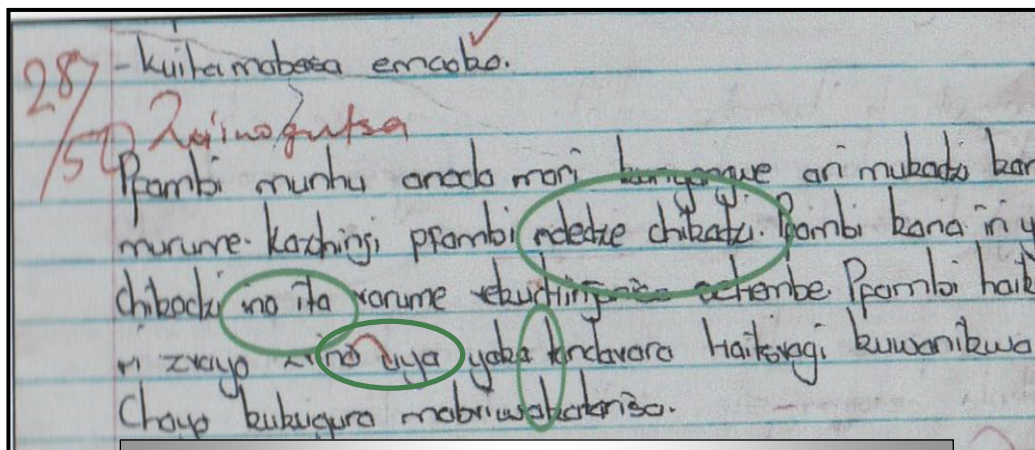 - kuita mabasa emaoko.
28/50 Zvinogutsa
Pfambi munhu anoda mari kunyangwe ari mukadzi kan
murume. kazhinji pfambi ndedze chikadzi. Pfambi kana iri y
chikadzi ino ita varume vekuchingoise achembe. Pfambi haik
ri zvayo zvino uya yaka tandavara Haitsvagi kuwanikwa
Chayo kukugura mabriwakakniso.